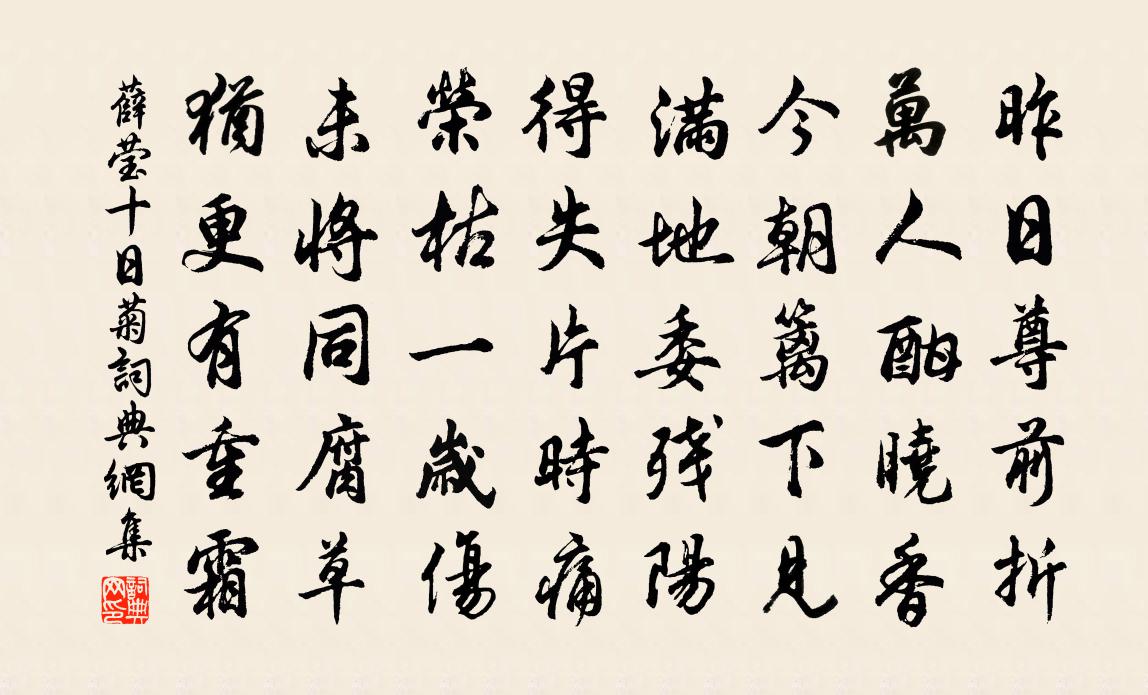 昨日尊前折
萬人酣曉香
今朝籬下見
滿地委残陽
得失片時痛
榮枯一歲傷
未將同腐草
猶更有重霜
薛瑩十日菊詞典網集
詞典
网印